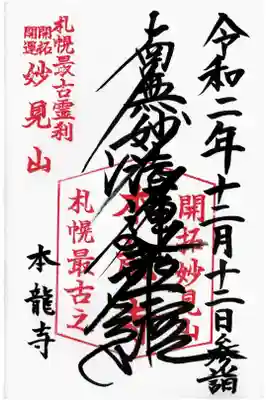 令和二年十二月十二日参詣
南無妙法蓮華経
開拓妙見山
札幌最古之
札幌最古霊刹
開拓
開運
妙見山
本龍寺